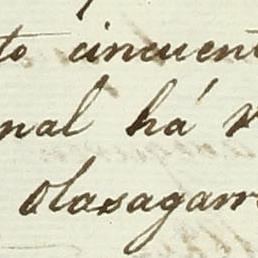 to cincuent
nal há v
Olasagarr